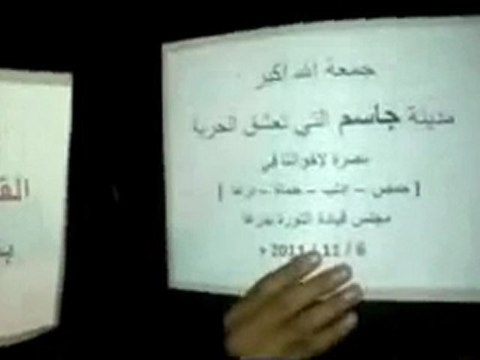 جمعة الله اكبر
مدينة جاسم التي تعشق الحرية
نصرة لاخواننا في
[ حمص – ادلب – حماة – درعا ]
مجلس قيادة الثورة بدرعا
6 / 11 / 2011